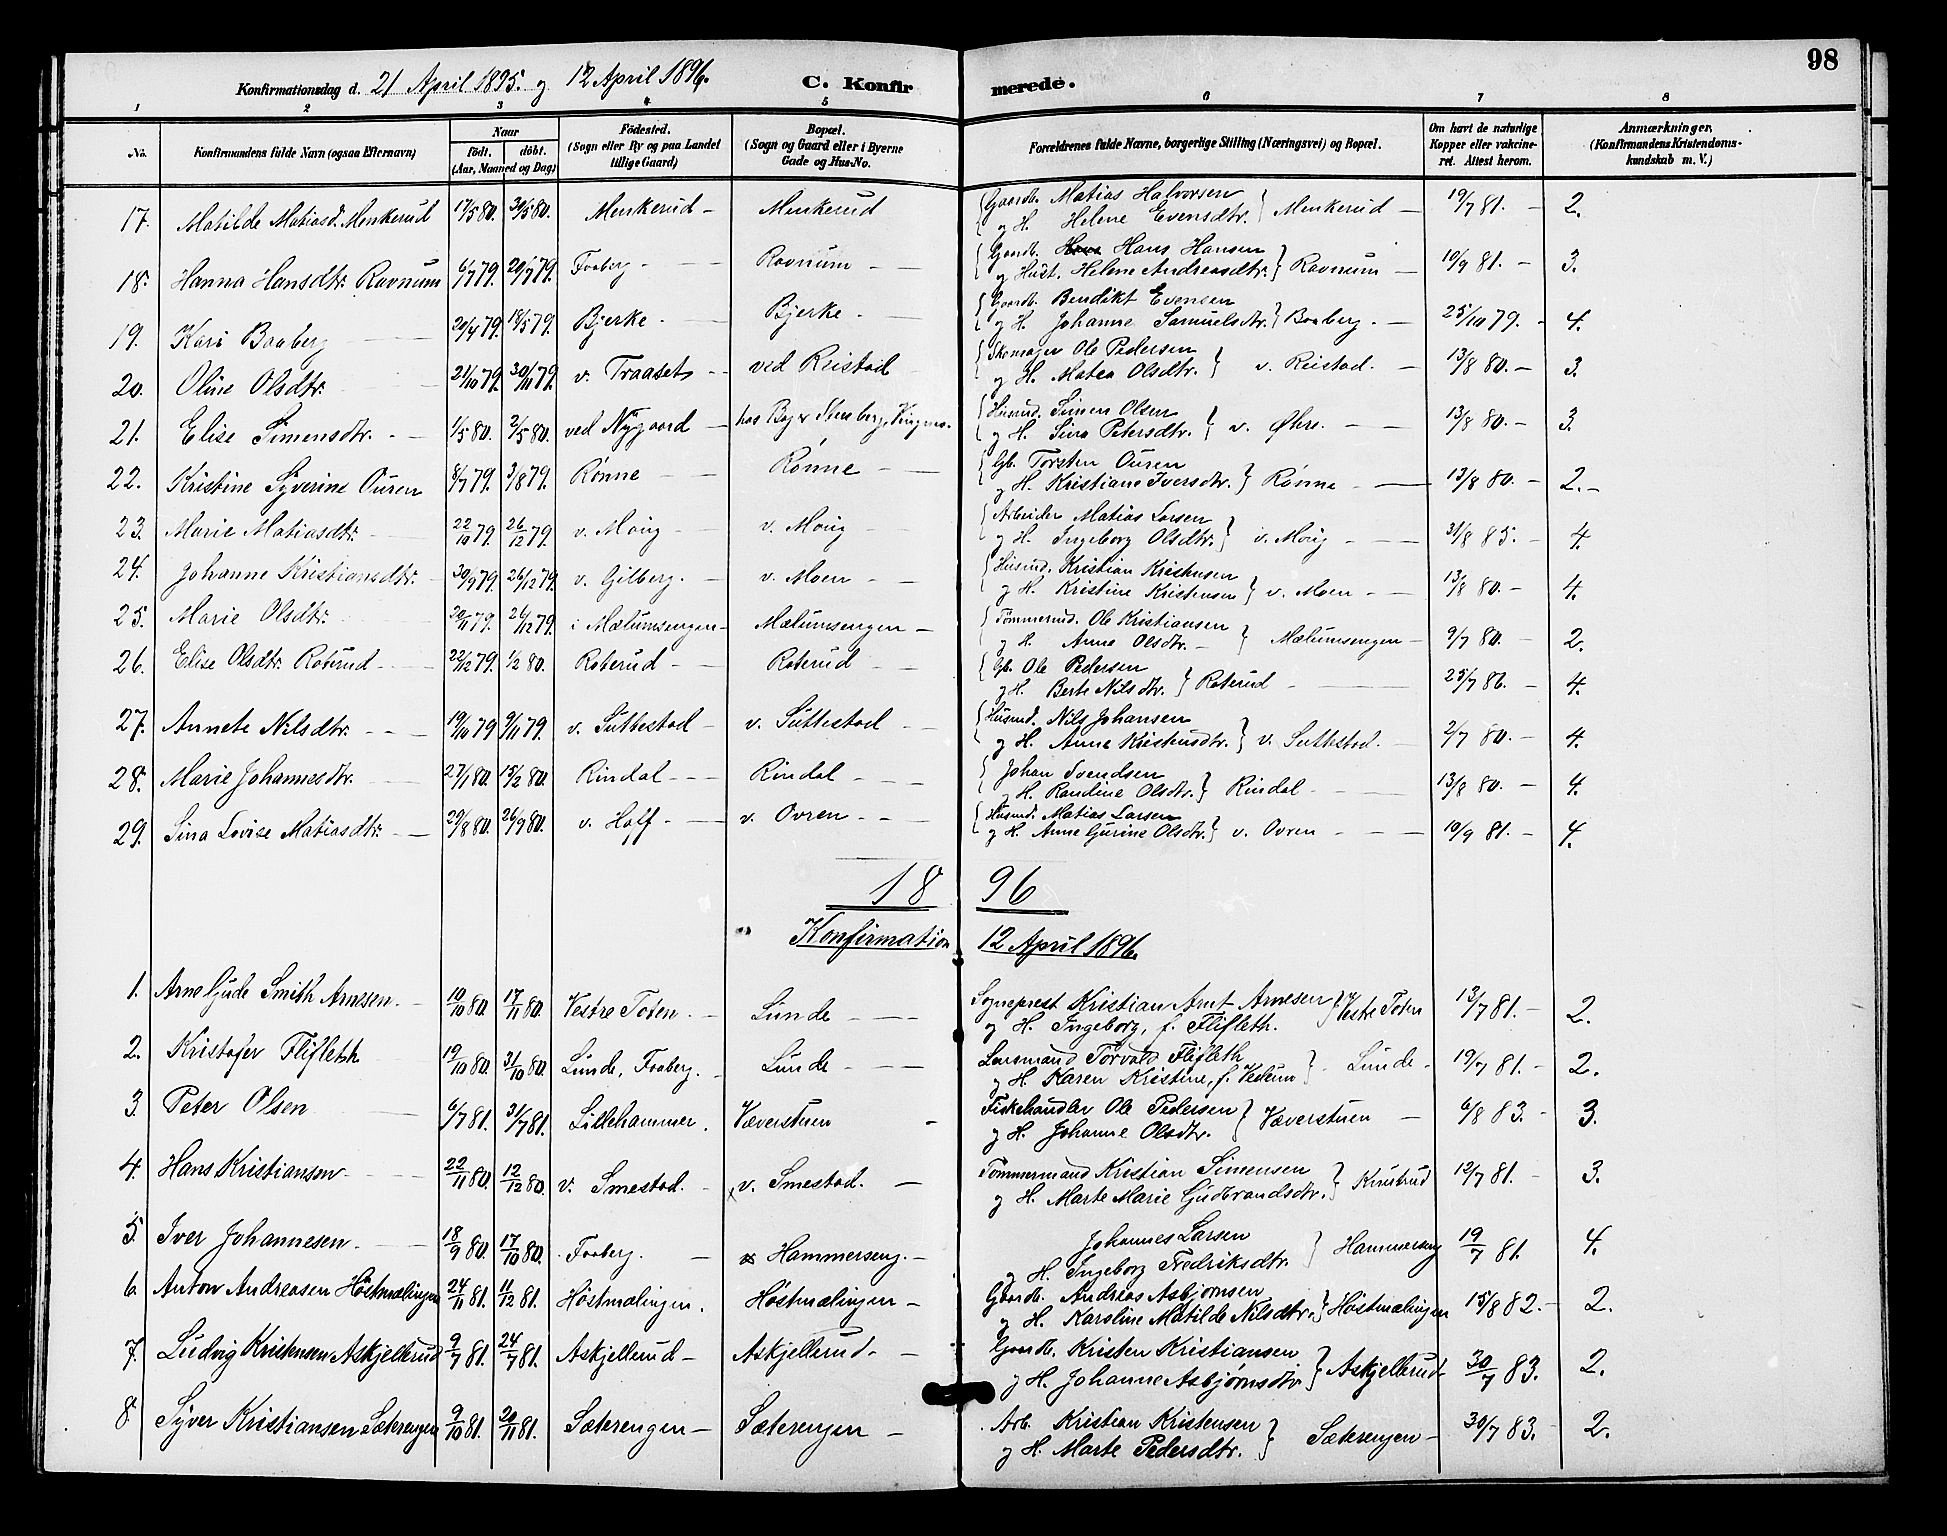 98
Konfirmationsdag d. 21 April 1895. og 12 April 1896. C. Konfirmerede.
1 2 3 4 5 6 7 8
No. Konfirmandens fulde Navn (ogsaa Efternavn) Naar født. døbt. (Aar, Maaned og Dag) Fødested. (Sogn eller By og paa Landet tillige Gaard) Bopæl. (Sogn og Gaard eller i Byerne Gade og Hus-No. Forældrenes fulde Navne, borgerlige Stilling (Næringsvei) og Bopæl. Om havt de naturlige Kopper eller vakcineret. Attest herom. Anmærkninger. (Konfirmandens Kristendomskundskab m. V.)
17. Matilde Matiasd. Menkerud 17/5 80. 30/5 80. Menkerud – Menkerud { Gaardb. Matias Halvorsen
og H. Helene Evensdtr. } Menkerud – 19/7 81. – 2.
18. Hanna Hansdtr. Ravnum 6/7 79. 20/7 79. Faaberg – Ravnum – { Gaardb. Hans Hansen
og Hust. Helene Andreasdtr. } Ravnum – 10/9 81. – 3.
19. Kari Baaberg 20/4 79. 18/5 79. Bjerke – Bjerke. – { Gaardb. Bendikt Evensen
og H. Johanne Samuelsdtr. } Baaberg. – 25/10 79. – 4.
20. Oline Olsdtr. 21/10 79. 30/11 79. v. Traaset – ved Reistad { Skomager Ole Pedersen
og H. Matea Olsdtr. } v. Reistad. – 13/8 80. – 3.
21. Elise Simensdtr. – 1/5 80. 2/5 80. ved Nygaard – hos Stensberg, { Husmd. Simen Olsen
og H. Sina Petersdtr. } v. Øhre. – 13/8 80. – 3.
22. Kristine Syverine Ouren 8/7 79. 3/8 79. Rønne – Rønne – { Gb. Torsten Ouren
og H. Kristiane Iversdtr. } Rønne – 13/8 80. – 2. –
23. Marie Matiasdtr. 22/10 79. 26/12 79. v. Moug – v. Moug – { Arbeider Matias Larsen
og H. Ingeborg Olsdtr. } v. Moug – 31/8 85. – 4.
24. Johanne Kristiansdtr. 30/9 79. 26/12 79. v. Gilberg. – v. Moen – { Husmd. Kristian Kristensen
og H. Kristine Kristensen } v. Moen – 13/8 80. – 4.
25. Marie Olsdtr. 20/11 79. 26/12 79. i Mælumsengen – Mælumsengen – { Tømmermd. Ole Kristiansen
og H. Anne Olsdtr. – } Mælumsengen – 9/7 80. – 2.
26. Elise Olsdtr. Roterud 22/12 79. 1/2 80. Roterud – Roterud – { Gb. Ole Pedersen
og H. Berte Nilsdtr. } Roterud – 25/7 86. – 4.
27. Annete Nilsdtr. – 19/10 79. 9/11 79. v. Suttestad – v. Suttestad – { Husmd. Nils Johansen
og H. Anne Kristensdtr. } v. Suttestad. – 2/7 80. – 4.
28. Marie Johannesdtr. 27/1 80. 15/2 80. Rindal – Rindal – { Johan Svendsen
og H. Randine Olsdtr. } Rindal – 13/8 80. – 4.
29. Sina Lovise Matiasdtr. – 29/8 80. 26/9 80. v. Holf – v. Ovren – { Husmd. Matias Larsen
og H. Anne Gurine Olsdtr. } v. Ovren – 10/9 81. – 4.
18 96
Konfirmation 12 April 1896.
1. Arne Gude Smith Arnesen. – 10/10 80. 17/11 80. Vestre Toten. – Lunde – Sogneprest Kristian Arnt Arnesen
og H. Ingeborg, f. Flifleth. } Vestre Toten 13/7 81. – 2.
2. Kristofer Flifleth 19/10 80. 31/10 80. Lunde, Faaberg. – Lunde – Lensmand Torvald Flifleth
og H. Karen Kristine, f. Vedum } Lunde – 19/7 81. – 2.
3. Peter Olsen 6/7 81. 31/7 81. Lillehammer. Væverstuen – Fiskehandler Ole Pedersen
og H. Johanne Olsdtr. } Væverstuen – 6/8 83. – 3.
4. Hans Kristiansen 22/11 80. 12/12 80. v. Smestad. – v. Smestad. – Tømmermand Kristian Simensen
og H. Marte Marie Gudbrandsdtr. } Knutrud 12/7 81. – 3.
5. Iver Johannesen. 18/9 80. 17/10 80. Faaberg. – Hammerseng. – Johannes Larsen
og H. Ingeborg Fredriksdtr. } Hammerseng 19/7 81. 4.
6. Anton Andreasen Høstmælingen 24/11 81. 11/12 81. Høstmælingen. Høstmælingen – Gaardb. Andreas Asbjørnsen
og H. Karoline Matilde Nilsdtr. } Høstmælingen 15/8 82. – 2.
7. Ludvig Kristensen Askjellerud 9/7 81. 24/7 81. Askjellerud – Askjellerud. – Gaardb. Kristen Kristiansen
og H. Johanne Asbjørnsdtr. } Askjellerud – 30/7 83. – 2.
8. Syver Kristiansen Sæterengen 9/10 81. 20/11 81. Sæterengen – Sæterengen – Arb. Kristian Kristensen
og H. Marte Pedersdtr. } Sæterengen – 30/7 83. – 2.